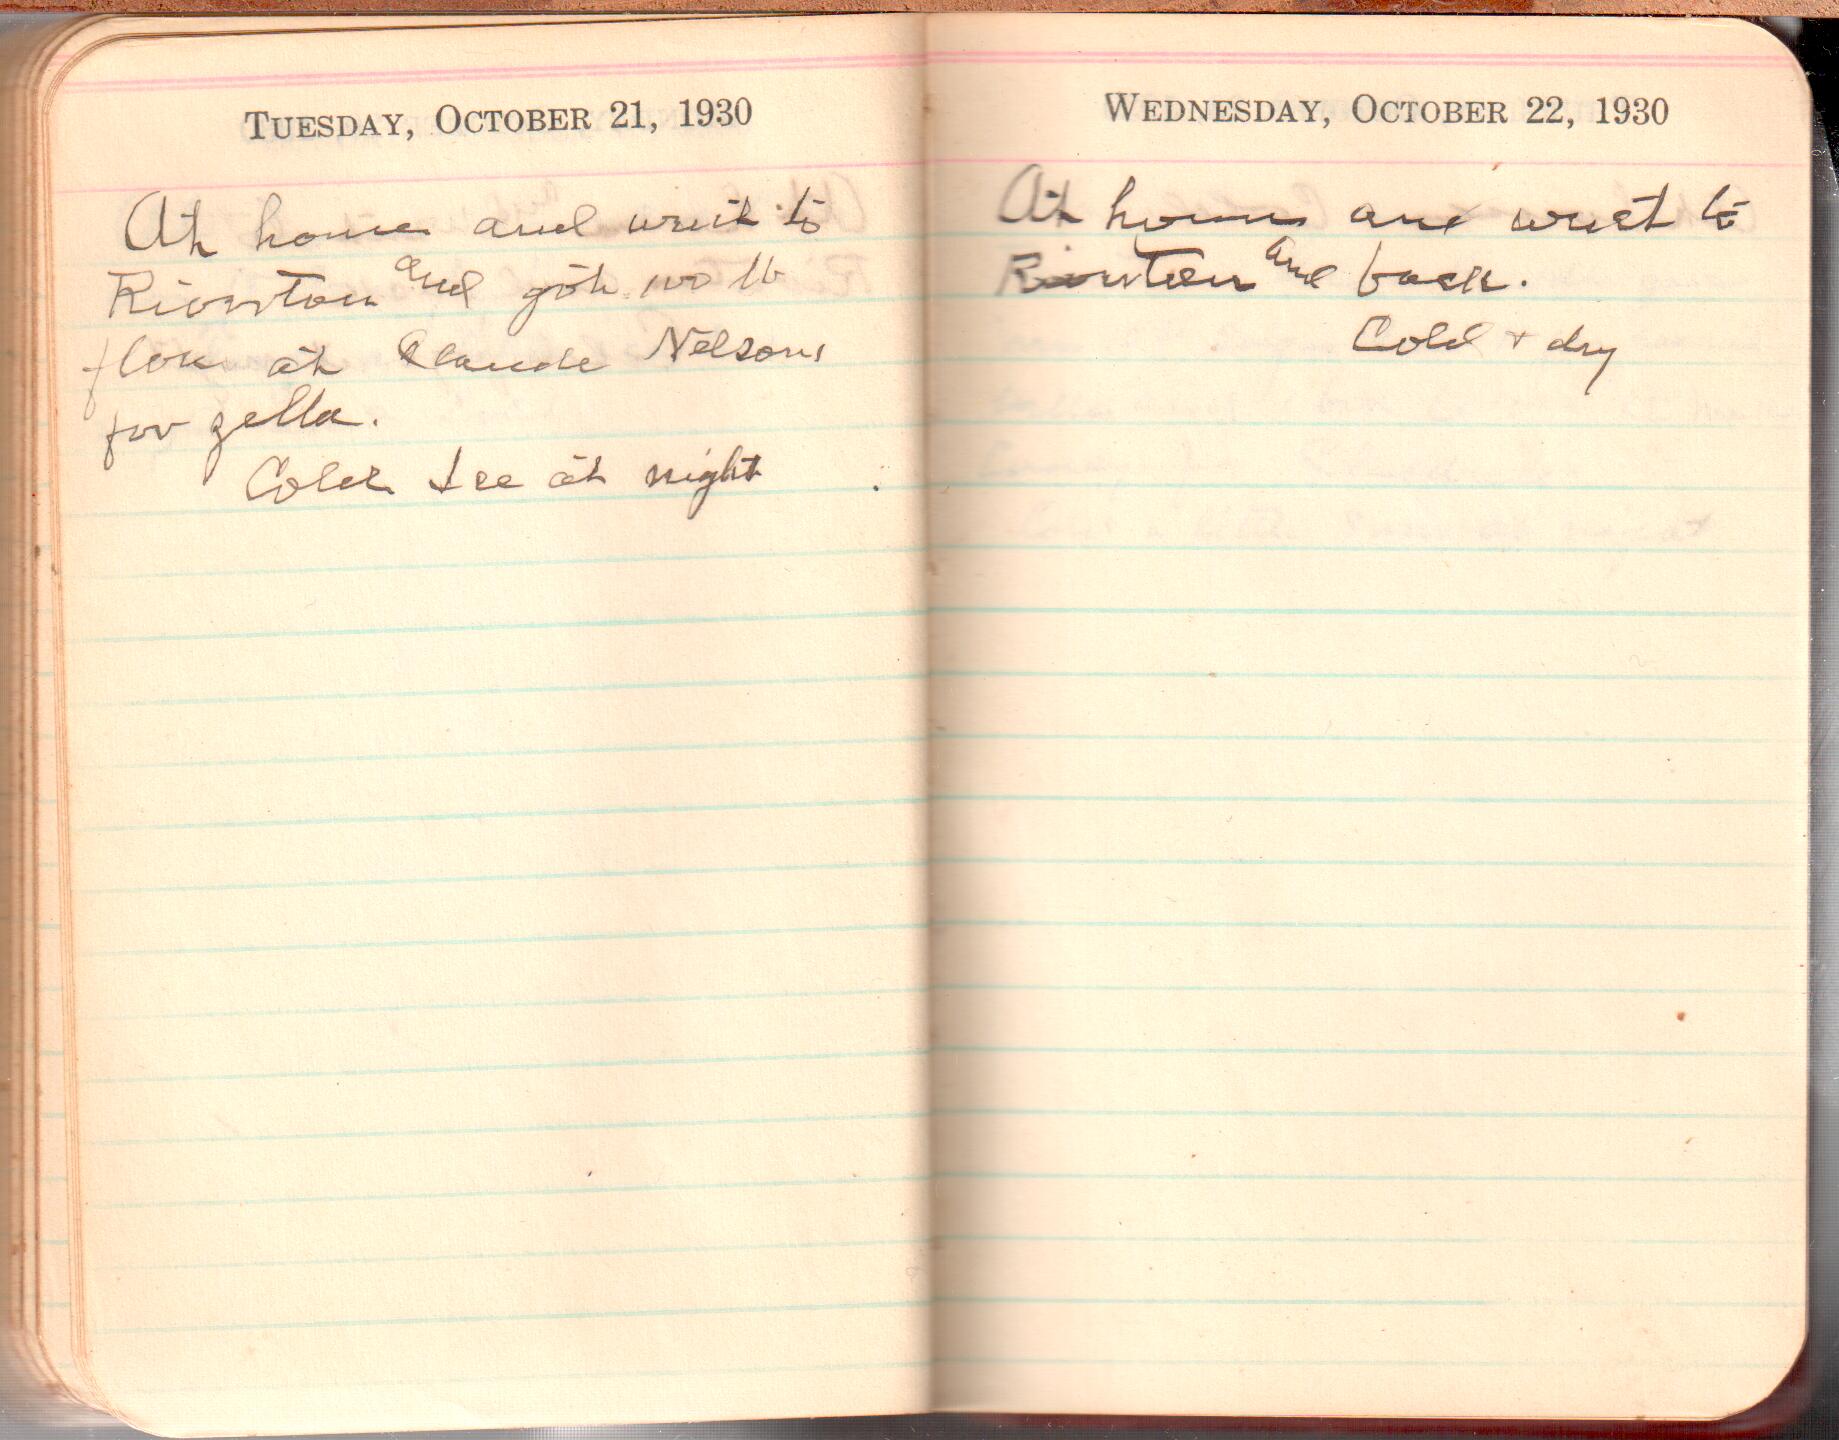 TUESDAY, OCTOBER 21, 1930
At home and went to
Riverton and got 100 lb
flour at Claude Nelsons
for Zella.
Cold Ice at night
WEDNESDAY, OCTOBER 22, 1930
At home and went to
Riverton and back.
Cold + dry